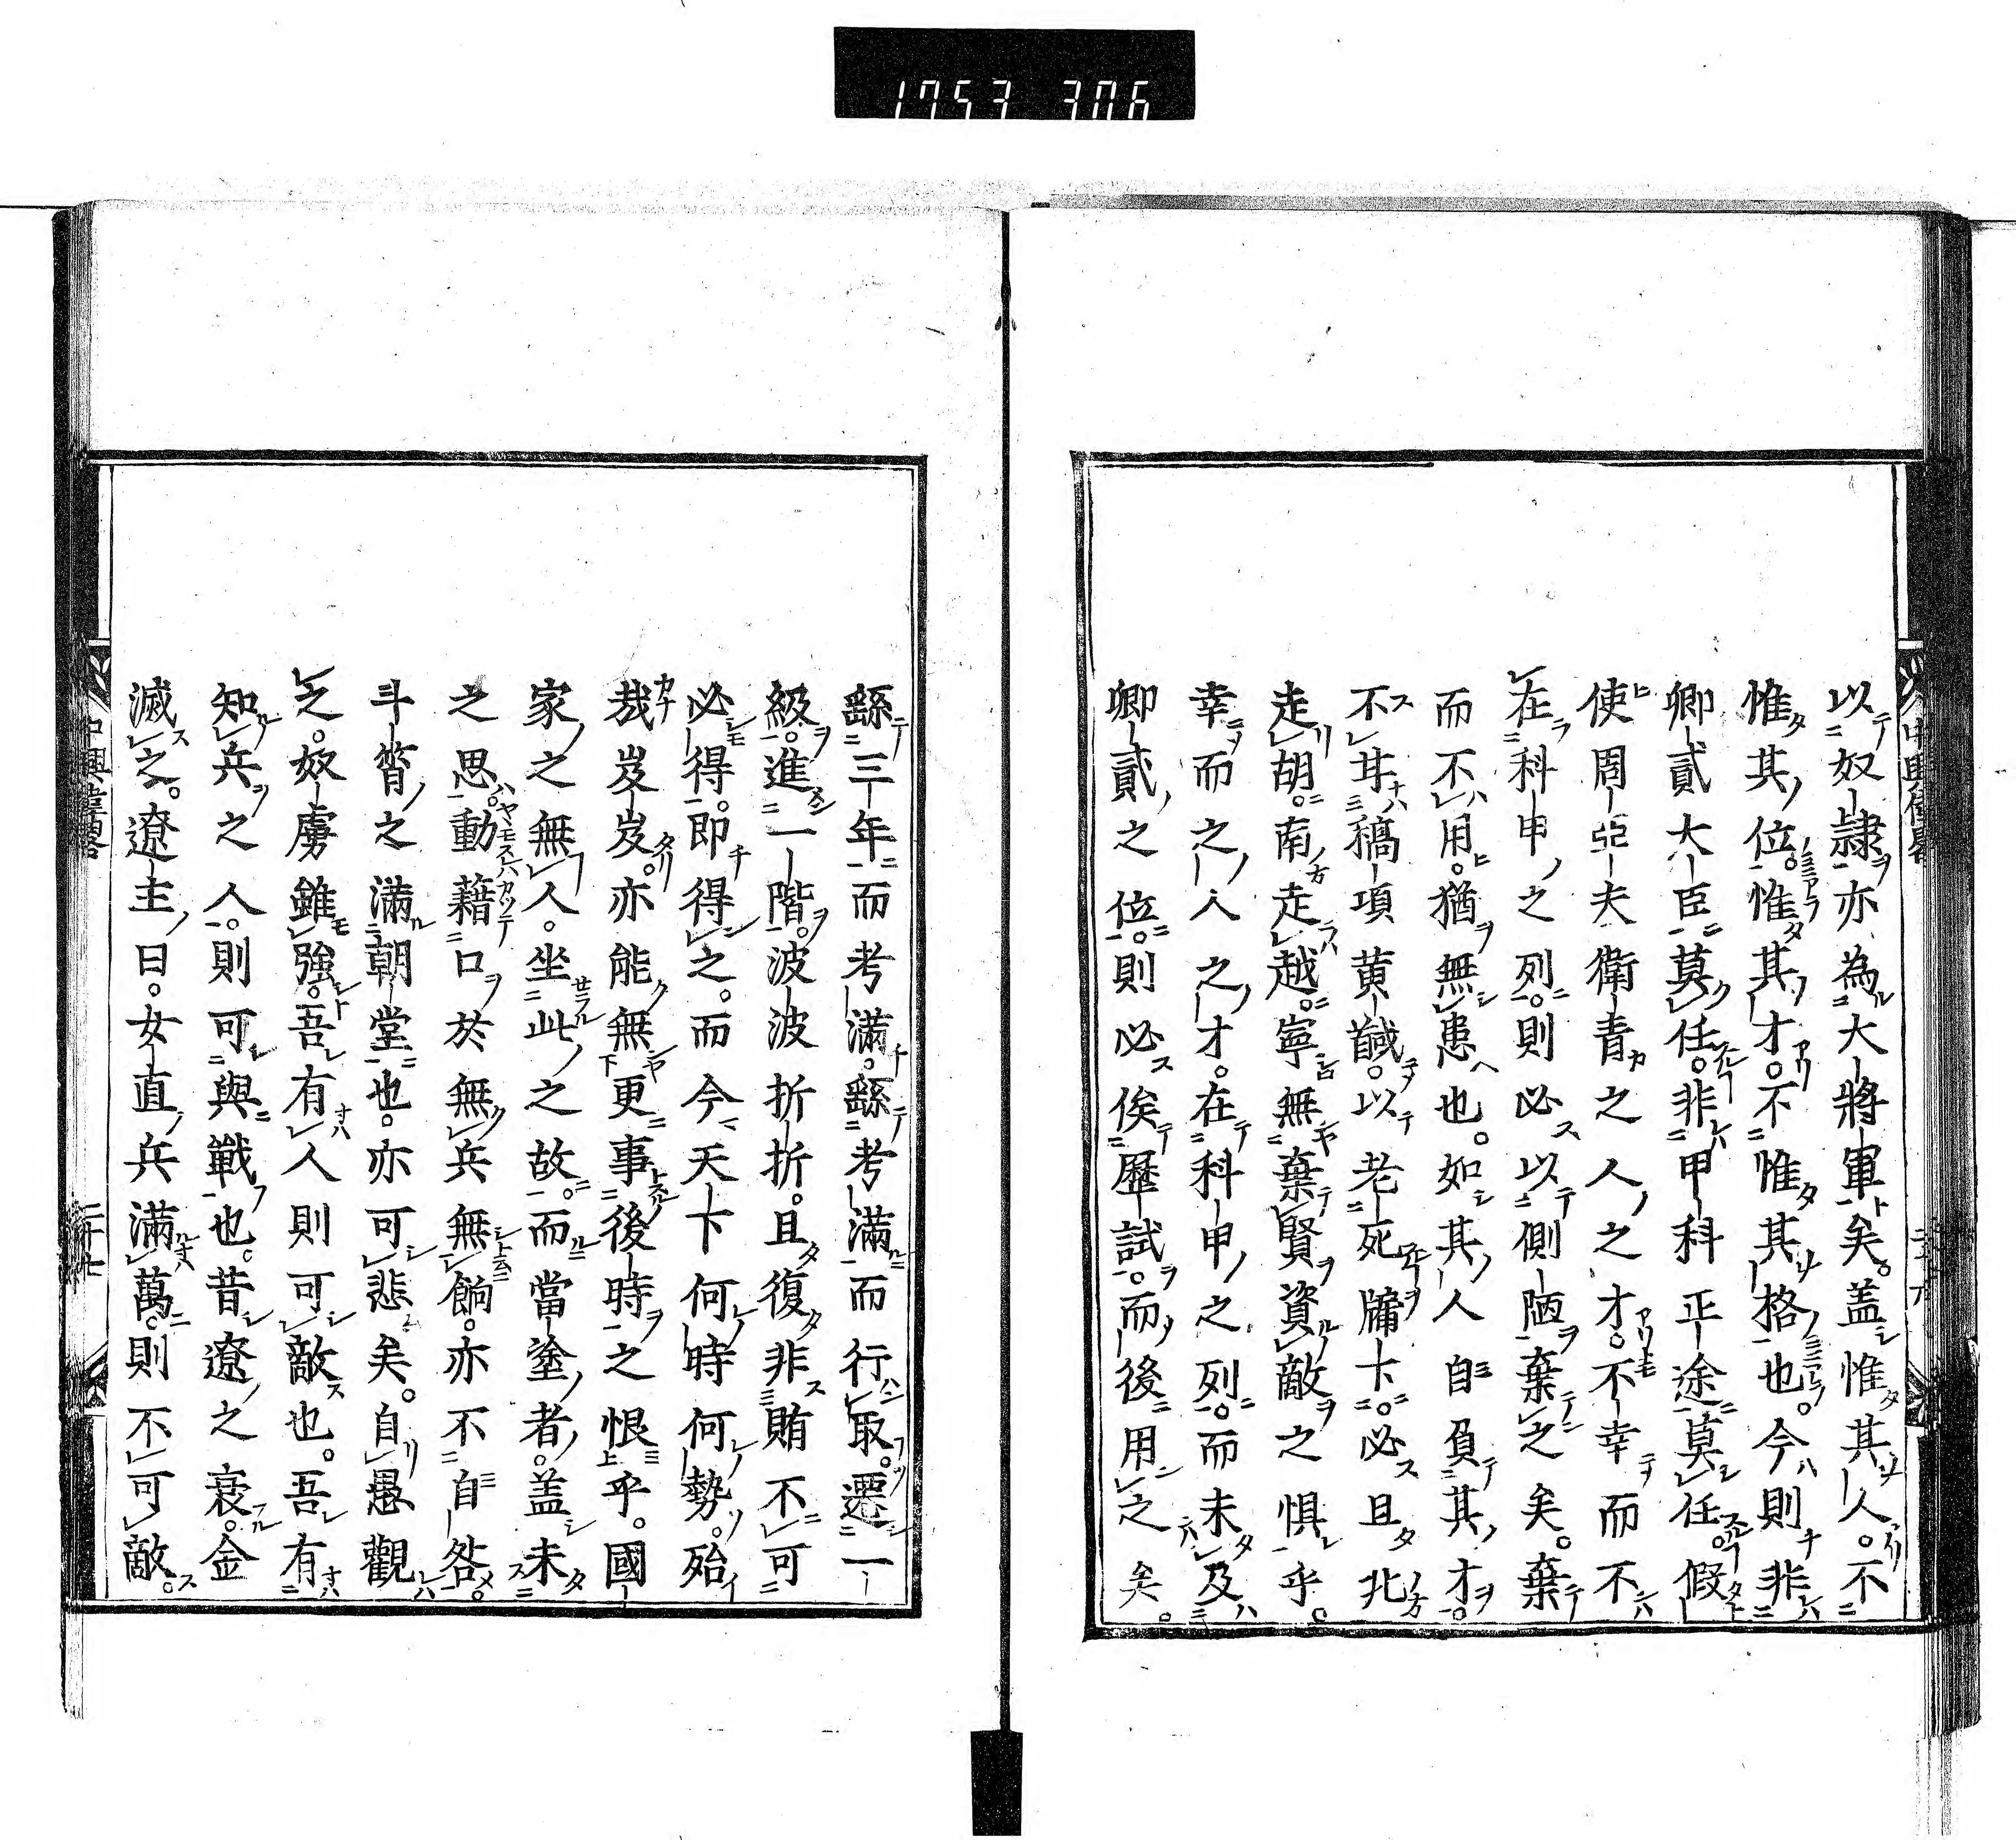 1753 306
以奴隷亦為大將軍矣。盖惟其人。不
惟其位。惟其才。不惟其格也。今則非
卿貳大臣莫任。非甲科正途莫任。假
使周亞夫衛青之人之才。不幸而不
在科甲之列。則必以側陋棄之矣。棄
而不用。猶無患也。如其人自負其才。
不甘稿項黄馘。以老死牖下。必且北
走胡。南走越。寧無棄賢資敵之惧乎。
幸而之人之才。在科甲之列。而未及
卿貳之位。則必俟歷試。而後用之矣。
繇三年而考滿。繇考滿而行取。遷一
級。進一階。波波折折。且復非賄不可
必得。即得之。而今天下何時何勢。殆
哉岌岌。亦能無更事後時之恨乎。國
家之無人。坐此之故。而當塗者。盖未
之思。動藉口於無兵無餉。亦不自咎。
斗筲之滿朝堂也。亦可悲矣。自愚觀
之。奴虜雖強。吾有人則可敵也。吾有
知兵之人。則可與戰也。昔遼之衰。金
滅之。遼主曰。女直兵滿萬。則不可敵。
二十七